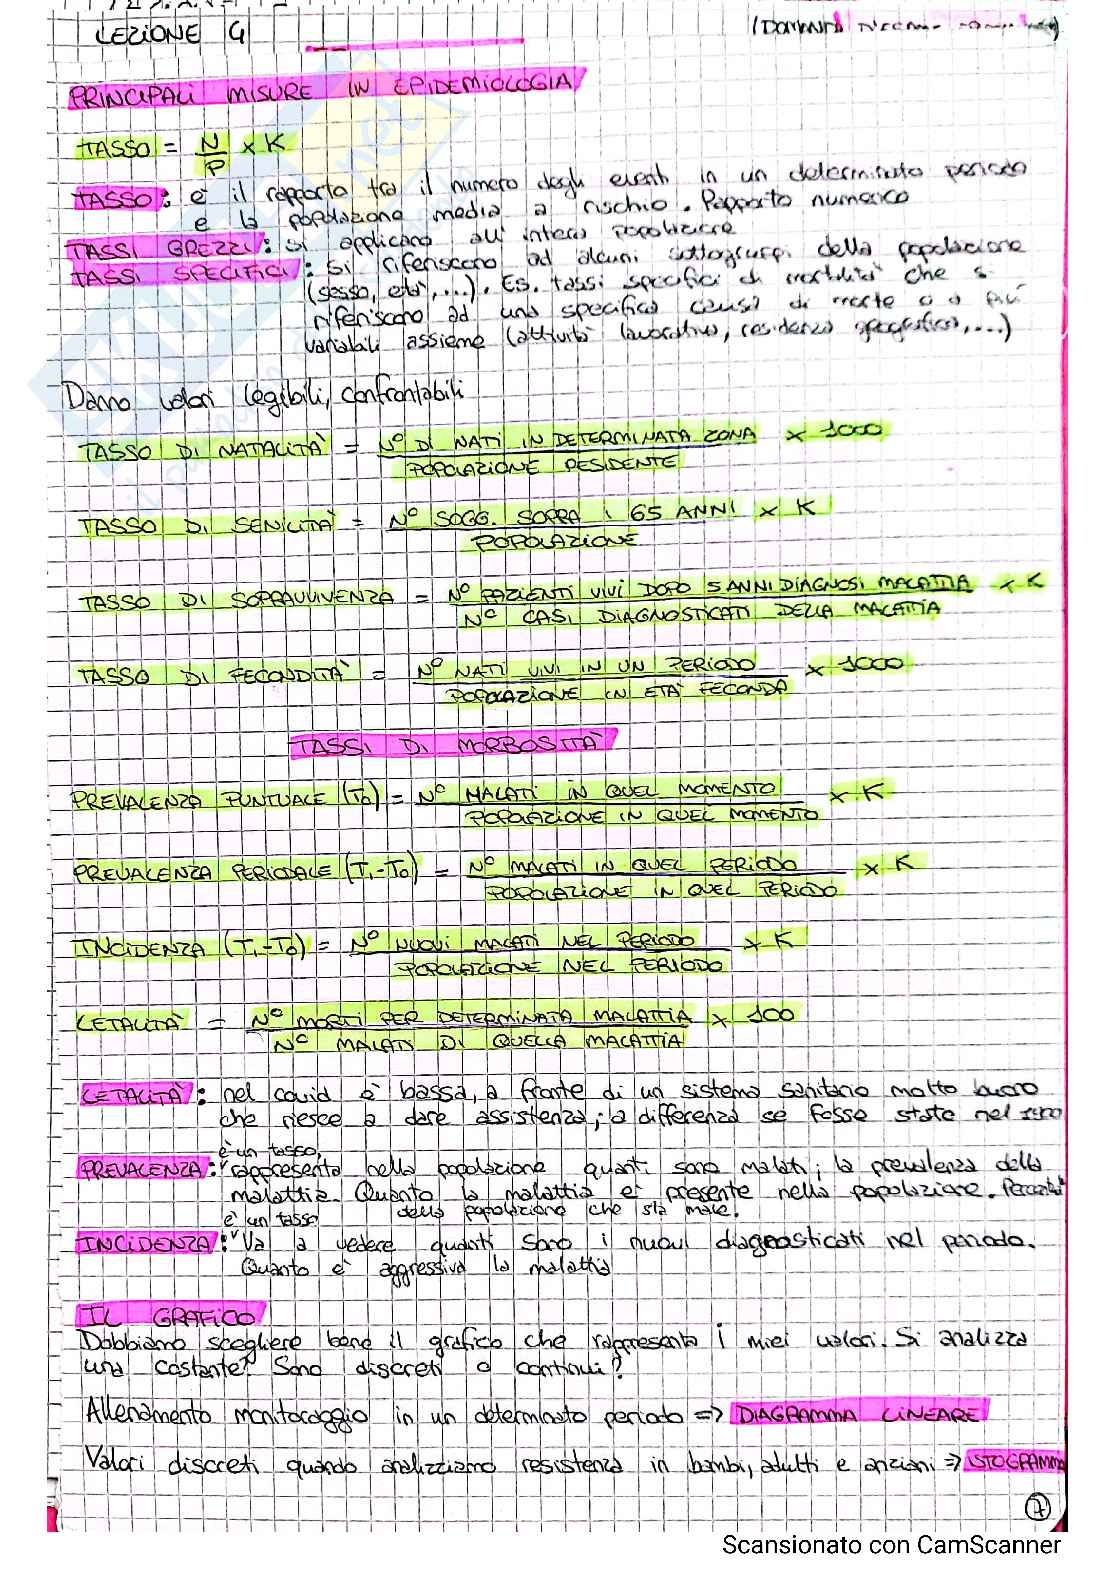 LEZIONE 4
PRINCIPALI MISURE IN EPIDEMIOLOGIA
TASSO = N/P x K
TASSO: è il rapporto tra il numero degli eventi in un determinato periodo
e la popolazione media a rischio. Rapporto numerico
TASSI GREZZI: si applicano all'intera popolazione
TASSI SPECIFICI: si riferiscono ad alcuni sottogruppi della popolazione
(sesso, età, ...). Es. tassi specifici di mortalità che si
riferiscono ad una specifica causa di morte o a più
variabili assieme (attività lavorativa, residenza geografica, ...)
Danno valori legibili, confrontabili
TASSO DI NATALITÀ = N° DI NATI IN DETERMINATA ZONA x 1000
POPOLAZIONE RESIDENTE
TASSO DI SENILITÀ = N° SOGG. SOPRA i 65 ANNI x K
POPOLAZIONE
TASSO DI SOPRAVVIVENZA = N° PAZIENTI VIVI DOPO 5 ANNI DIAGNOSI MALATTIA x K
N° CASI DIAGNOSTICATI DELLA MALATTIA
TASSO DI FECONDITÀ = N° NATI VIVI IN UN PERIODO x 1000
POPOLAZIONE IN ETÀ FECONDA
TASSI DI MORBOSITÀ
PREVALENZA PUNTUALE (T0) = N° MALATI IN QUEL MOMENTO x K
POPOLAZIONE IN QUEL MOMENTO
PREVALENZA PERIODALE (T1-T0) = N° MALATI IN QUEL PERIODO x K
POPOLAZIONE IN QUEL PERIODO
INCIDENZA (T1-T0) = N° NUOVI MALATI NEL PERIODO x K
POPOLAZIONE NEL PERIODO
LETALITÀ = N° MORTI PER DETERMINATA MALATTIA x 100
N° MALATI DI QUELLA MALATTIA
LETALITÀ: nel covid è bassa, a fronte di un sistema sanitario molto buono
che riesce a dare assistenza; a differenza se fosse stato nel
è un tasso,
PREVALENZA: rappresenta nella popolazione quanti sono malati; la prevalenza della
malattia. Quanto la malattia è presente nella popolazione.
della popolazione che sta male.
è un tasso
INCIDENZA: Va a vedere quanti sono i nuovi diagnosticati nel periodo.
Quanto è aggressiva la malattia
IL GRAFICO
Dobbiamo scegliere bene il grafico che rappresenta i miei valori. Si analizza
una costante? Sono discreti o continui?
Allenamento monitoraggio in un determinato periodo => DIAGRAMMA LINEARE
Valori discreti quando analizziamo resistenza in bambi, adulti e anziani => ISTOGRAMMA
7
Scansionato con CamScanner